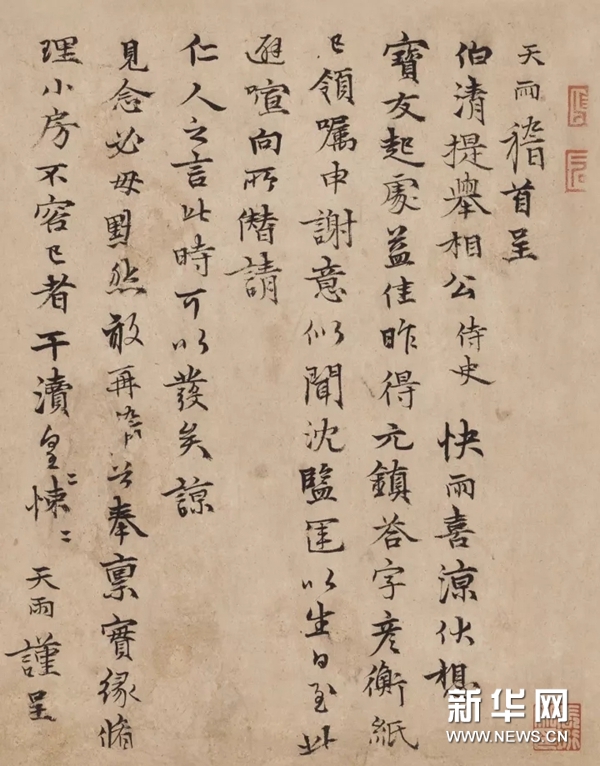 天雨稽首呈
伯清提舉相公侍史 快雨喜涼伏想
寶友起處益佳昨得元鎮荅字彦衡紙
已領囑申謝意似聞沈監運以生日至此
避喧向所僣請
仁人之言此時可以發矣諒
見念必毋默然敢再啓奉禀實緣脩
理小房不容已者干瀆皇=悚=
天雨謹呈
新华网
WWW.NEWS.CN